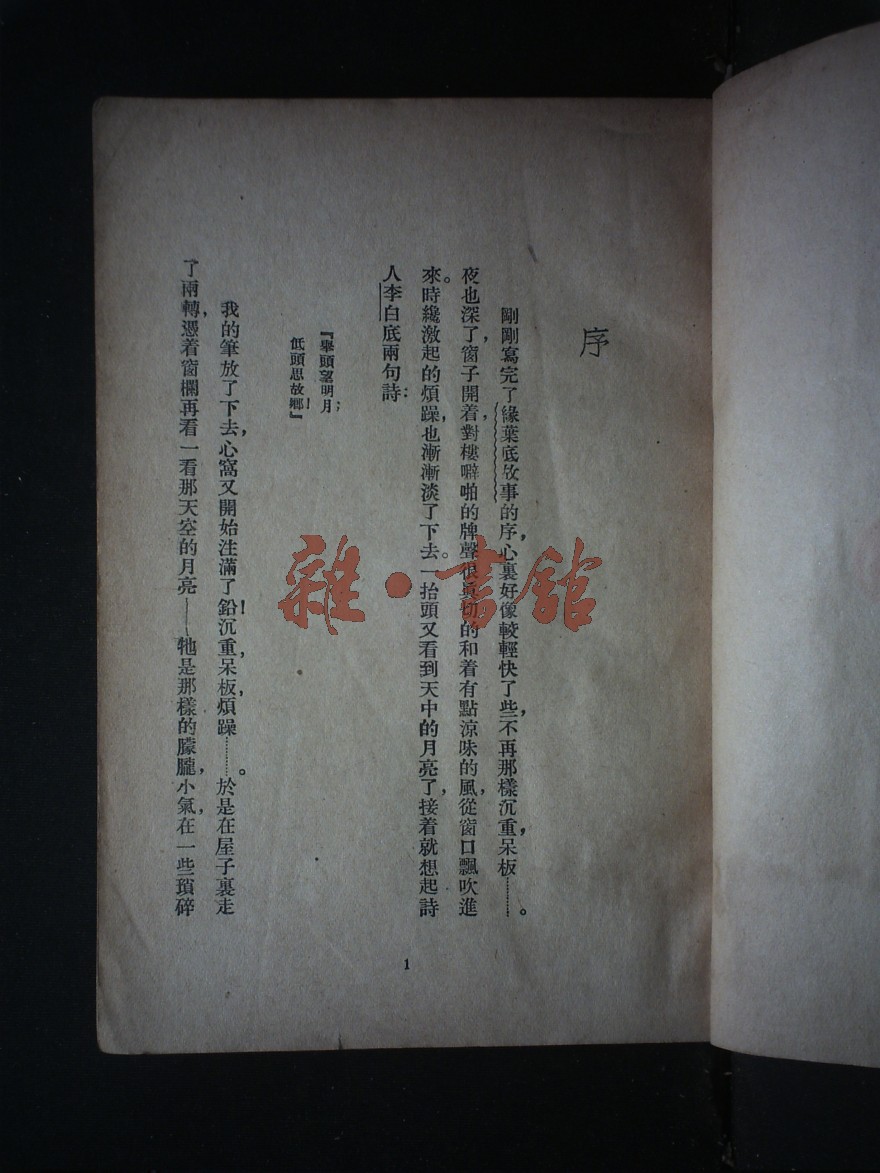 序
剛剛寫完了緣葉底故事的序，心裏好像較輕快了些，不再那樣沉重，呆板………。
夜也深了，窗子開着，對樓噼啪的牌聲很眞切的和着有點涼味的風，從窗口飄吹進
來。時纔激起的煩躁，也漸漸淡了下去。一抬頭又看到天中的月亮了，接着就想起詩
人李白底兩句詩：
『舉頭望明月；
低頭思故鄉！』
我的筆放了下去，心窩又開始注滿了鉛！沉重，呆板，煩躁………。於是在屋子裏走
了兩轉，憑着窗欄再看一看那天空的月亮——牠是那樣的朦朧，小氣，在一些瑣碎
1
雜·書館